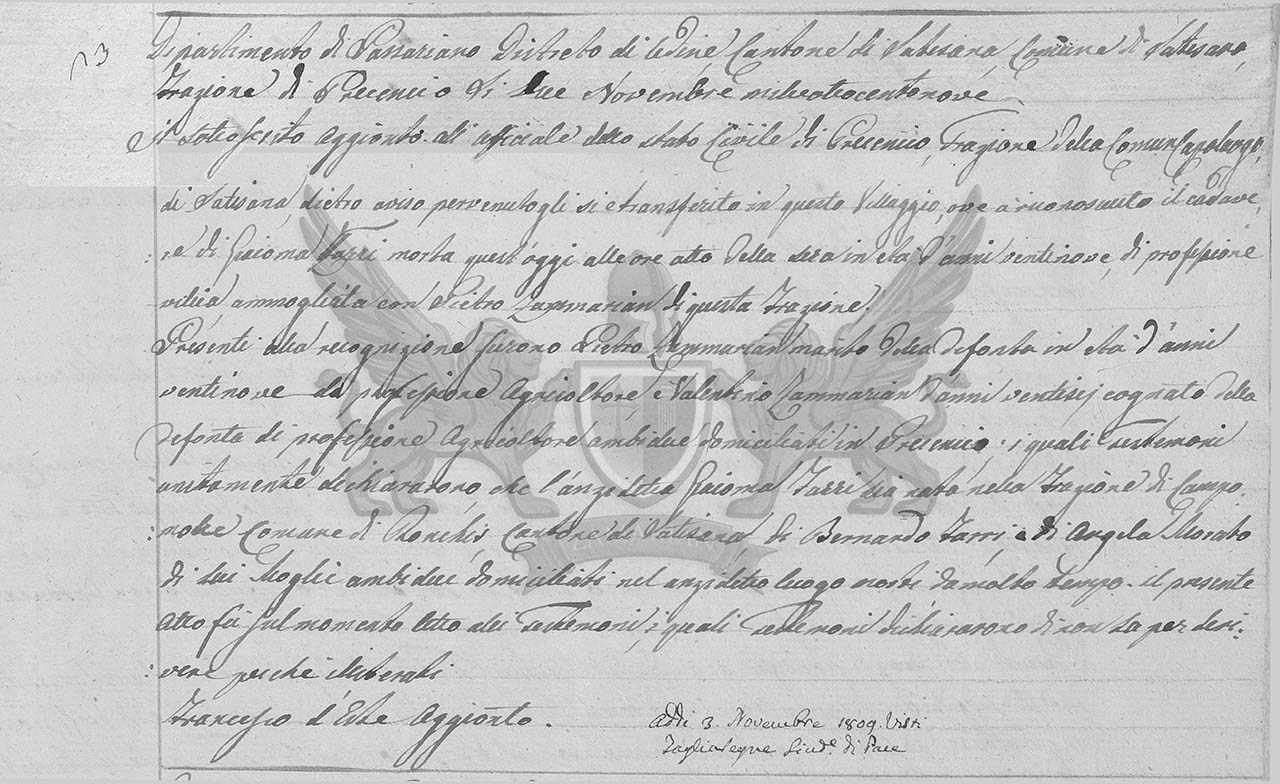 73
Dipartimento di Passariano Distreto di Udine, Cantone di Latisana, Comune di Latisana,
Frazione di Precenico Li Due Novembre milleottocentonove
il sottoscrito Aggionto all ufficiale dello stato Civile di Precenico, Frazione della Comun Capoluogo,
di Latisana, dietro aviso pervenutogli si è transferito in questo Villaggio, ove à riconosciuto il cadave,
:re di Giacoma Farri morta quest'oggi alle ore otto della sera in età d'anni ventinove, di professione
vilica, ammogliata con Pietro Zammarian di questa Frazione.
Presenti alla recognizione furono Pietro Zammarian marito della defonta in età d'anni
ventinove da professione Agricoltore e Valentino Zammarian d'anni ventisej cognato della
defonta di professione Agricoltore ambidue domiciliati in Precenico, i quali testemoni
unitamente dichiararono che l'anzideta Giacoma Farri sia nata nella Frazione di Campo,
:molle Comune di Ronchis, Cantone di Latisana, di Bernardo Farri, e di Angela Morato
di lui Moglie ambidue domiciliati nel anzidetto luogo morti da molto tempo. il presente
Atto fu sul momento letto alli Testemoni, i quali testemoni dichiararono di non saper scri,
:vere perchè illiterati
Francesco d'Este Aggionto.
Addi 3. Novembre 1809. Visti
Tagliasegne Giud.e di Pace